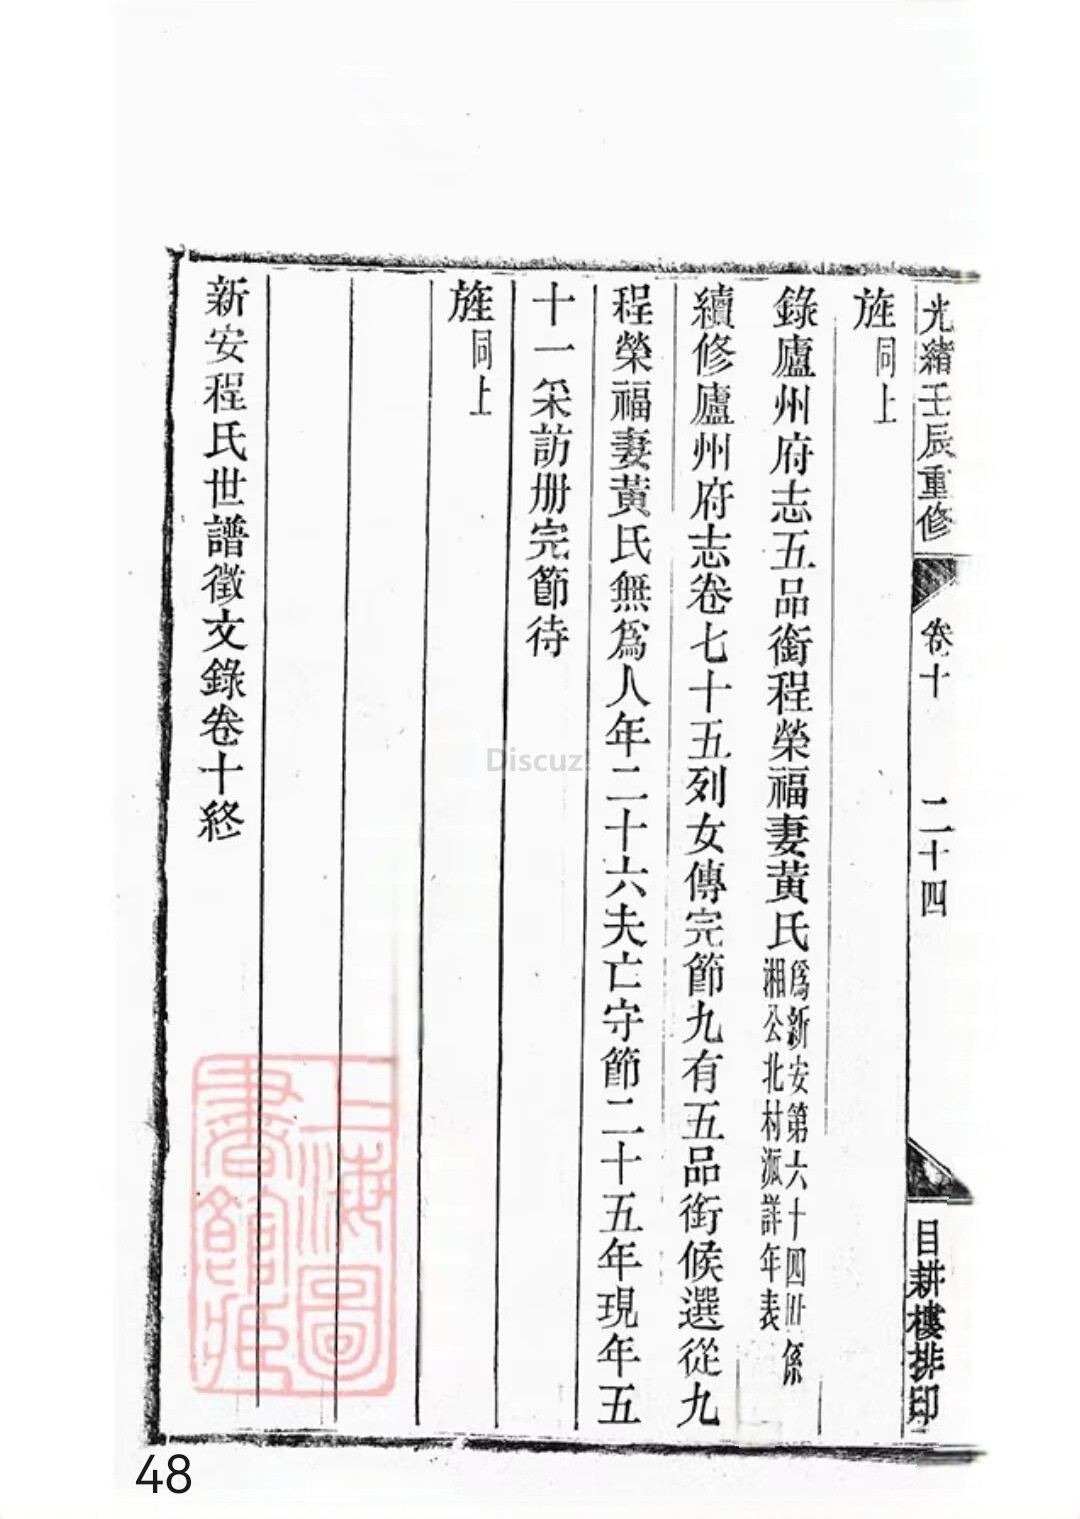 光緒壬辰重修
卷十
二十四
目耕樓排印
旌同上
錄廬州府志五品銜程榮福妻黃氏爲新安第六十四世係
湘公北村派詳年表
續修廬州府志卷七十五列女傳完節九有五品銜候選從九
程榮福妻黃氏無爲人年二十六夫亡守節二十五年現年五
十一采訪册完節待
旌同上
新安程氏世譜徵文錄卷十終
上海圖
書館藏
Discuz!
48